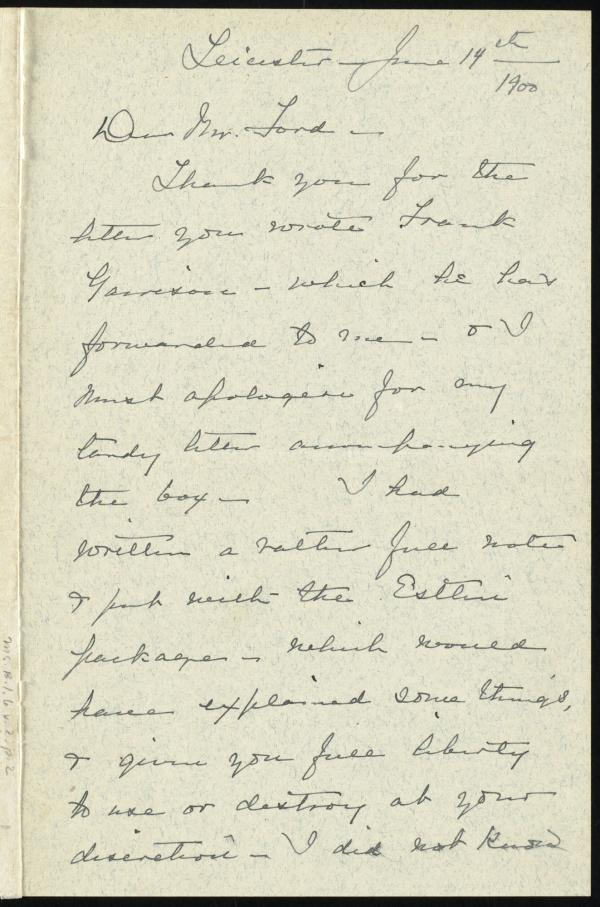 Leicester – June 14th
1900
Dear Mr. Ford –
Thank you for the
letter you wrote Frank
Garrison – which he has
forwarded to me – & I
must apologize for my
tardy letter accompanying
the box – I had
written a rather full note
& put with the Estlin
packages – which would
have explained some things,
& given you full liberty
to use or destroy at your
discretion – I did not know